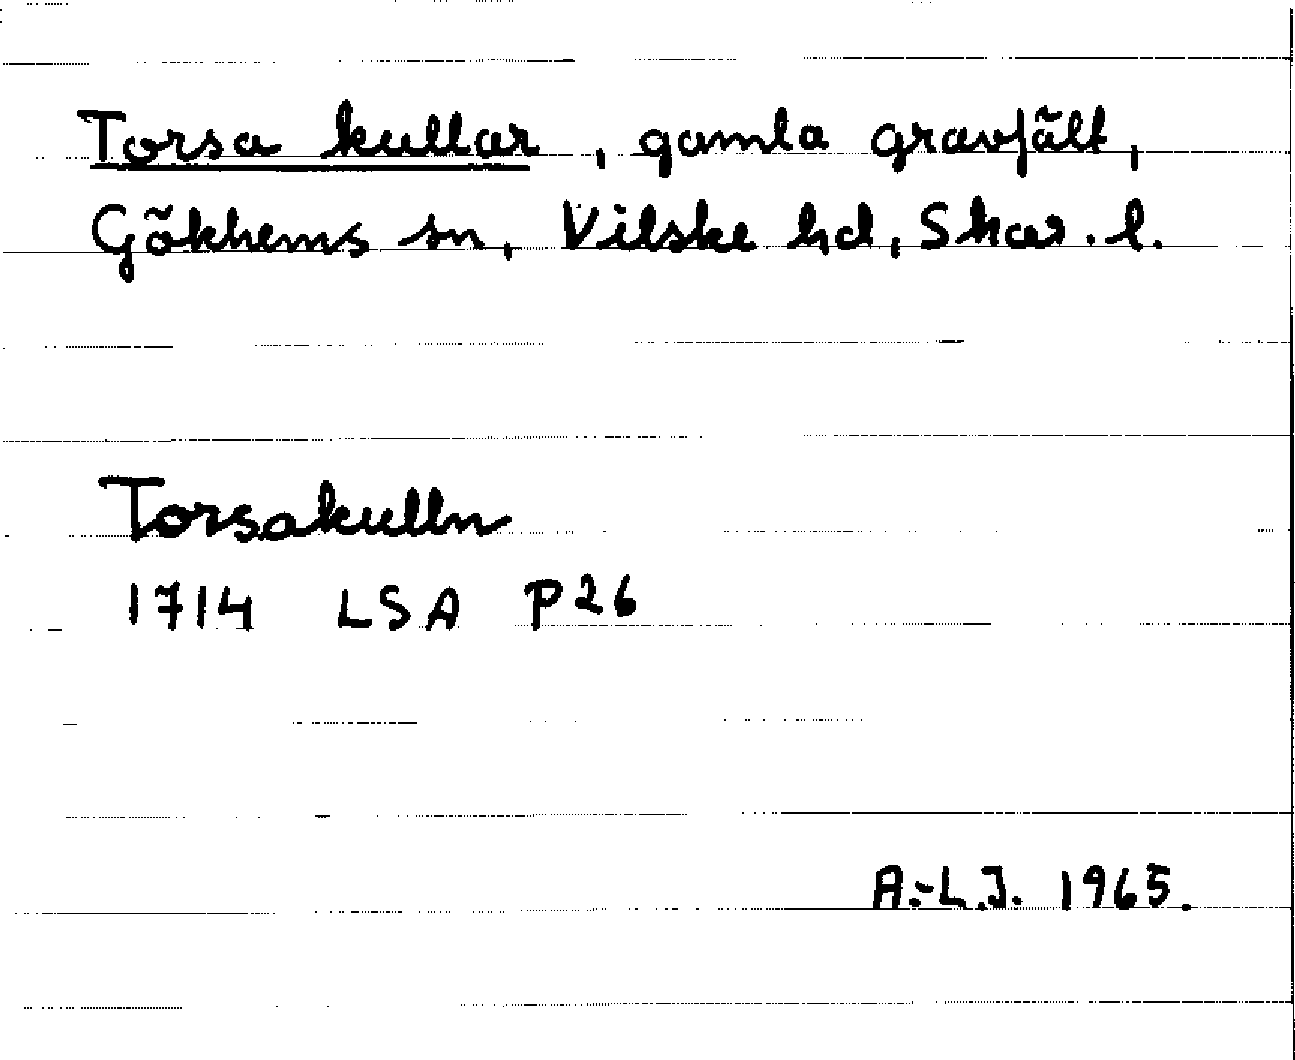 Torsa kullar, gamla gravfält,
Gökhems sn, Vilske hd, Skar. l.
Torsakulln
1714 LSA P26
A.-L.J. 1965.